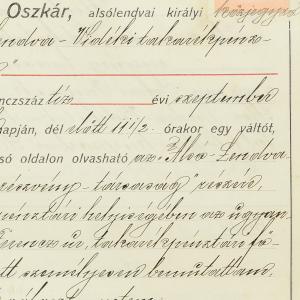 Oszkár, alsólendvai királyi közjegyző
endva-Vidéki takarékpénz-
"
nczszáz tíz évi szeptember
napján, dél előtt 11 1/2 órakor egy váltót,
só oldalon olvasható az „Alsó-Lendva-
részvény-társaság" részére,
pénztári helyiségében az ugyan-
Ferencz úr, takarékpénztári fő-
tt személyesen bemutattam,